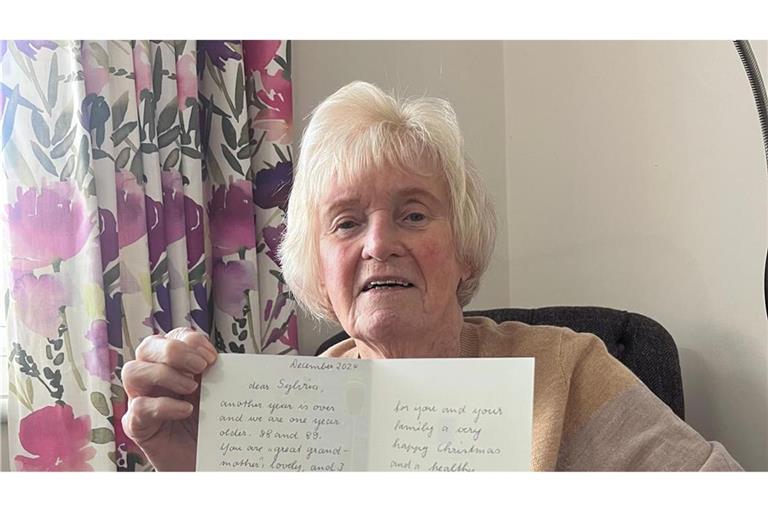 December 2024
dear Sylvia,
another year is over
and we are one year
older. 88 and 89.
You are "great grand-
mother", lovely, and I
for you and your
family a very
happy Christmas
and a healthy